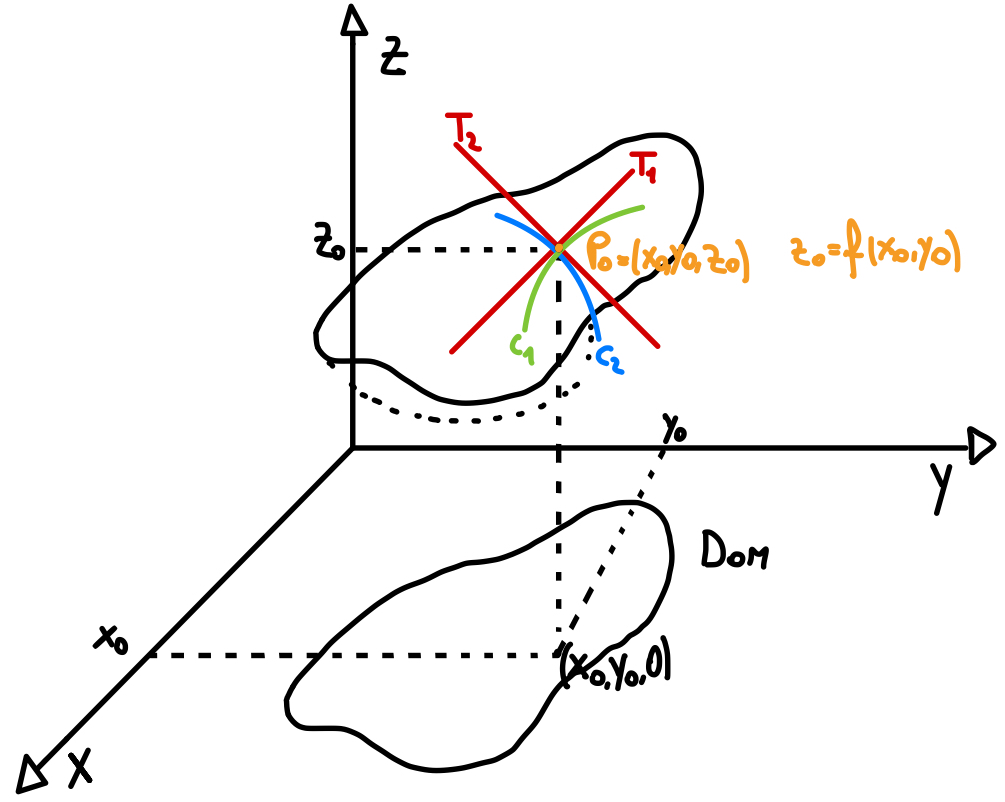 Z
T₂
T₁
z₀
P₀=(x₀,y₀,z₀)
z₀=f(x₀,y₀)
C₁
C₂
y₀
Y
Dom
x₀
(x₀,y₀,0)
X